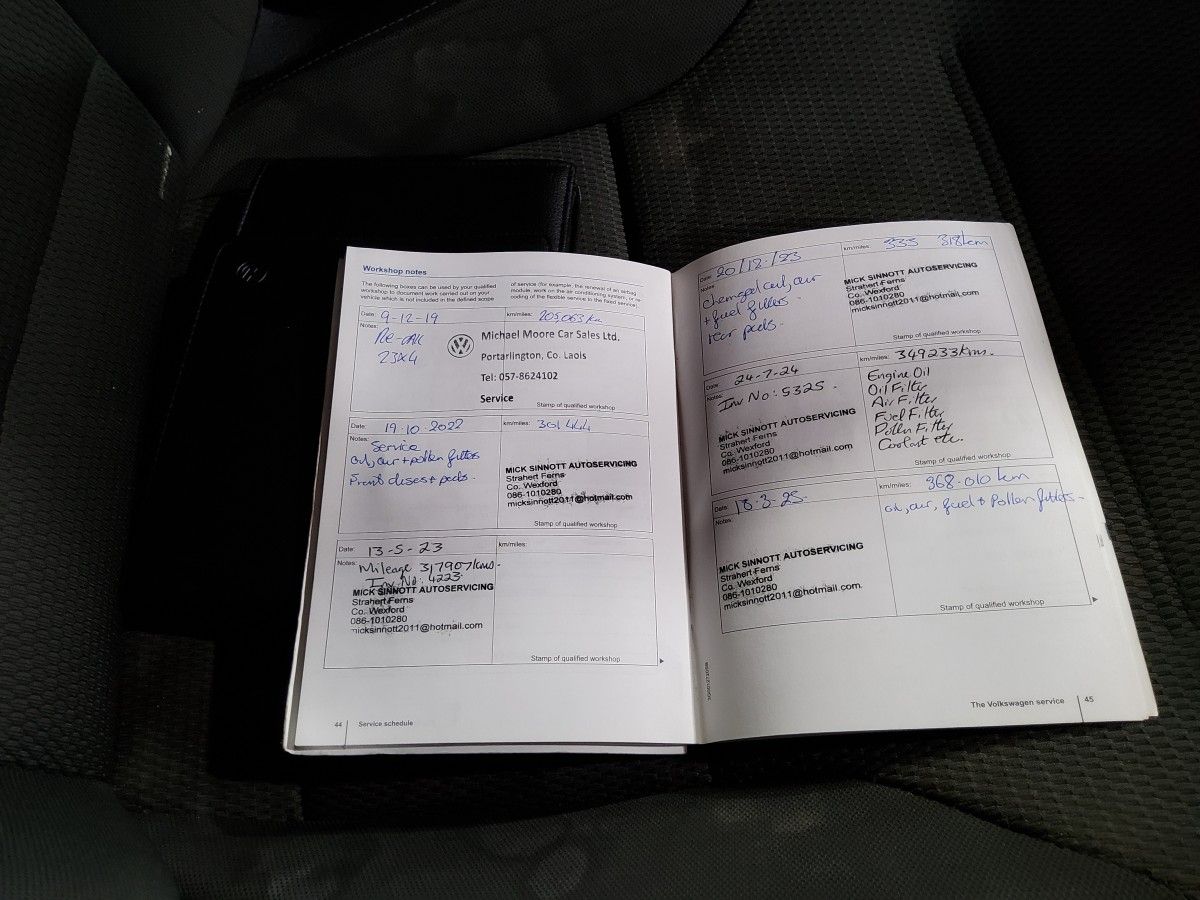 Workshop notes
The following boxes can be used by your qualified
workshop to document work carried out on your
vehicle which is not included in the defined scope
of service (for example, the renewal of an airbag
module, work on the air conditioning system, or re-
coding of the flexible service to the fixed service)
Date: 9-12-19
km/miles: 205063 km
Notes:
23x4
Michael Moore Car Sales Ltd.
Portarlington, Co. Laois
Tel: 057-8624102
Service
Stamp of qualified workshop
Date: 19.10.2022
km/miles: 301 444
Notes: Service
oil, air + pollen filters
Front discs + pads.
MICK SINNOTT AUTOSERVICING
Strahert Ferns
Co. Wexford
086-1010280
micksinnott2011@hotmail.com
Stamp of qualified workshop
Date: 13-5-23
km/miles:
Notes: Mileage 317907kms.
Inv No: 4223
MICK SINNOTT AUTOSERVICING
Strahert Ferns
Co. Wexford
086-1010280
micksinnott2011@hotmail.com
Stamp of qualified workshop
44 Service schedule
Date: 20/12/23
km/miles: 335 318km
Notes
changed oil, air
+ fuel filters.
rear pads.
MICK SINNOTT AUTOSERVICING
Strahert Ferns
Co. Wexford
086-1010280
micksinnott2011@hotmail.com
Stamp of qualified workshop
Date: 24-7-24
km/miles: 349233kms.
Notes: Inv No: 5325.
MICK SINNOTT AUTOSERVICING
Strahert Ferns
Co. Wexford
086-1010280
micksinnott2011@hotmail.com
Engine Oil
Oil Filter
Air Filter
Fuel Filter
Pollen Filter
Coolant etc.
Stamp of qualified workshop
Date: 18-3-25.
km/miles: 368.010 km
Notes:
oil, air, fuel + Pollen filters.
MICK SINNOTT AUTOSERVICING
Strahert Ferns
Co. Wexford
086-1010280
micksinnott2011@hotmail.com
Stamp of qualified workshop
The Volkswagen service 45